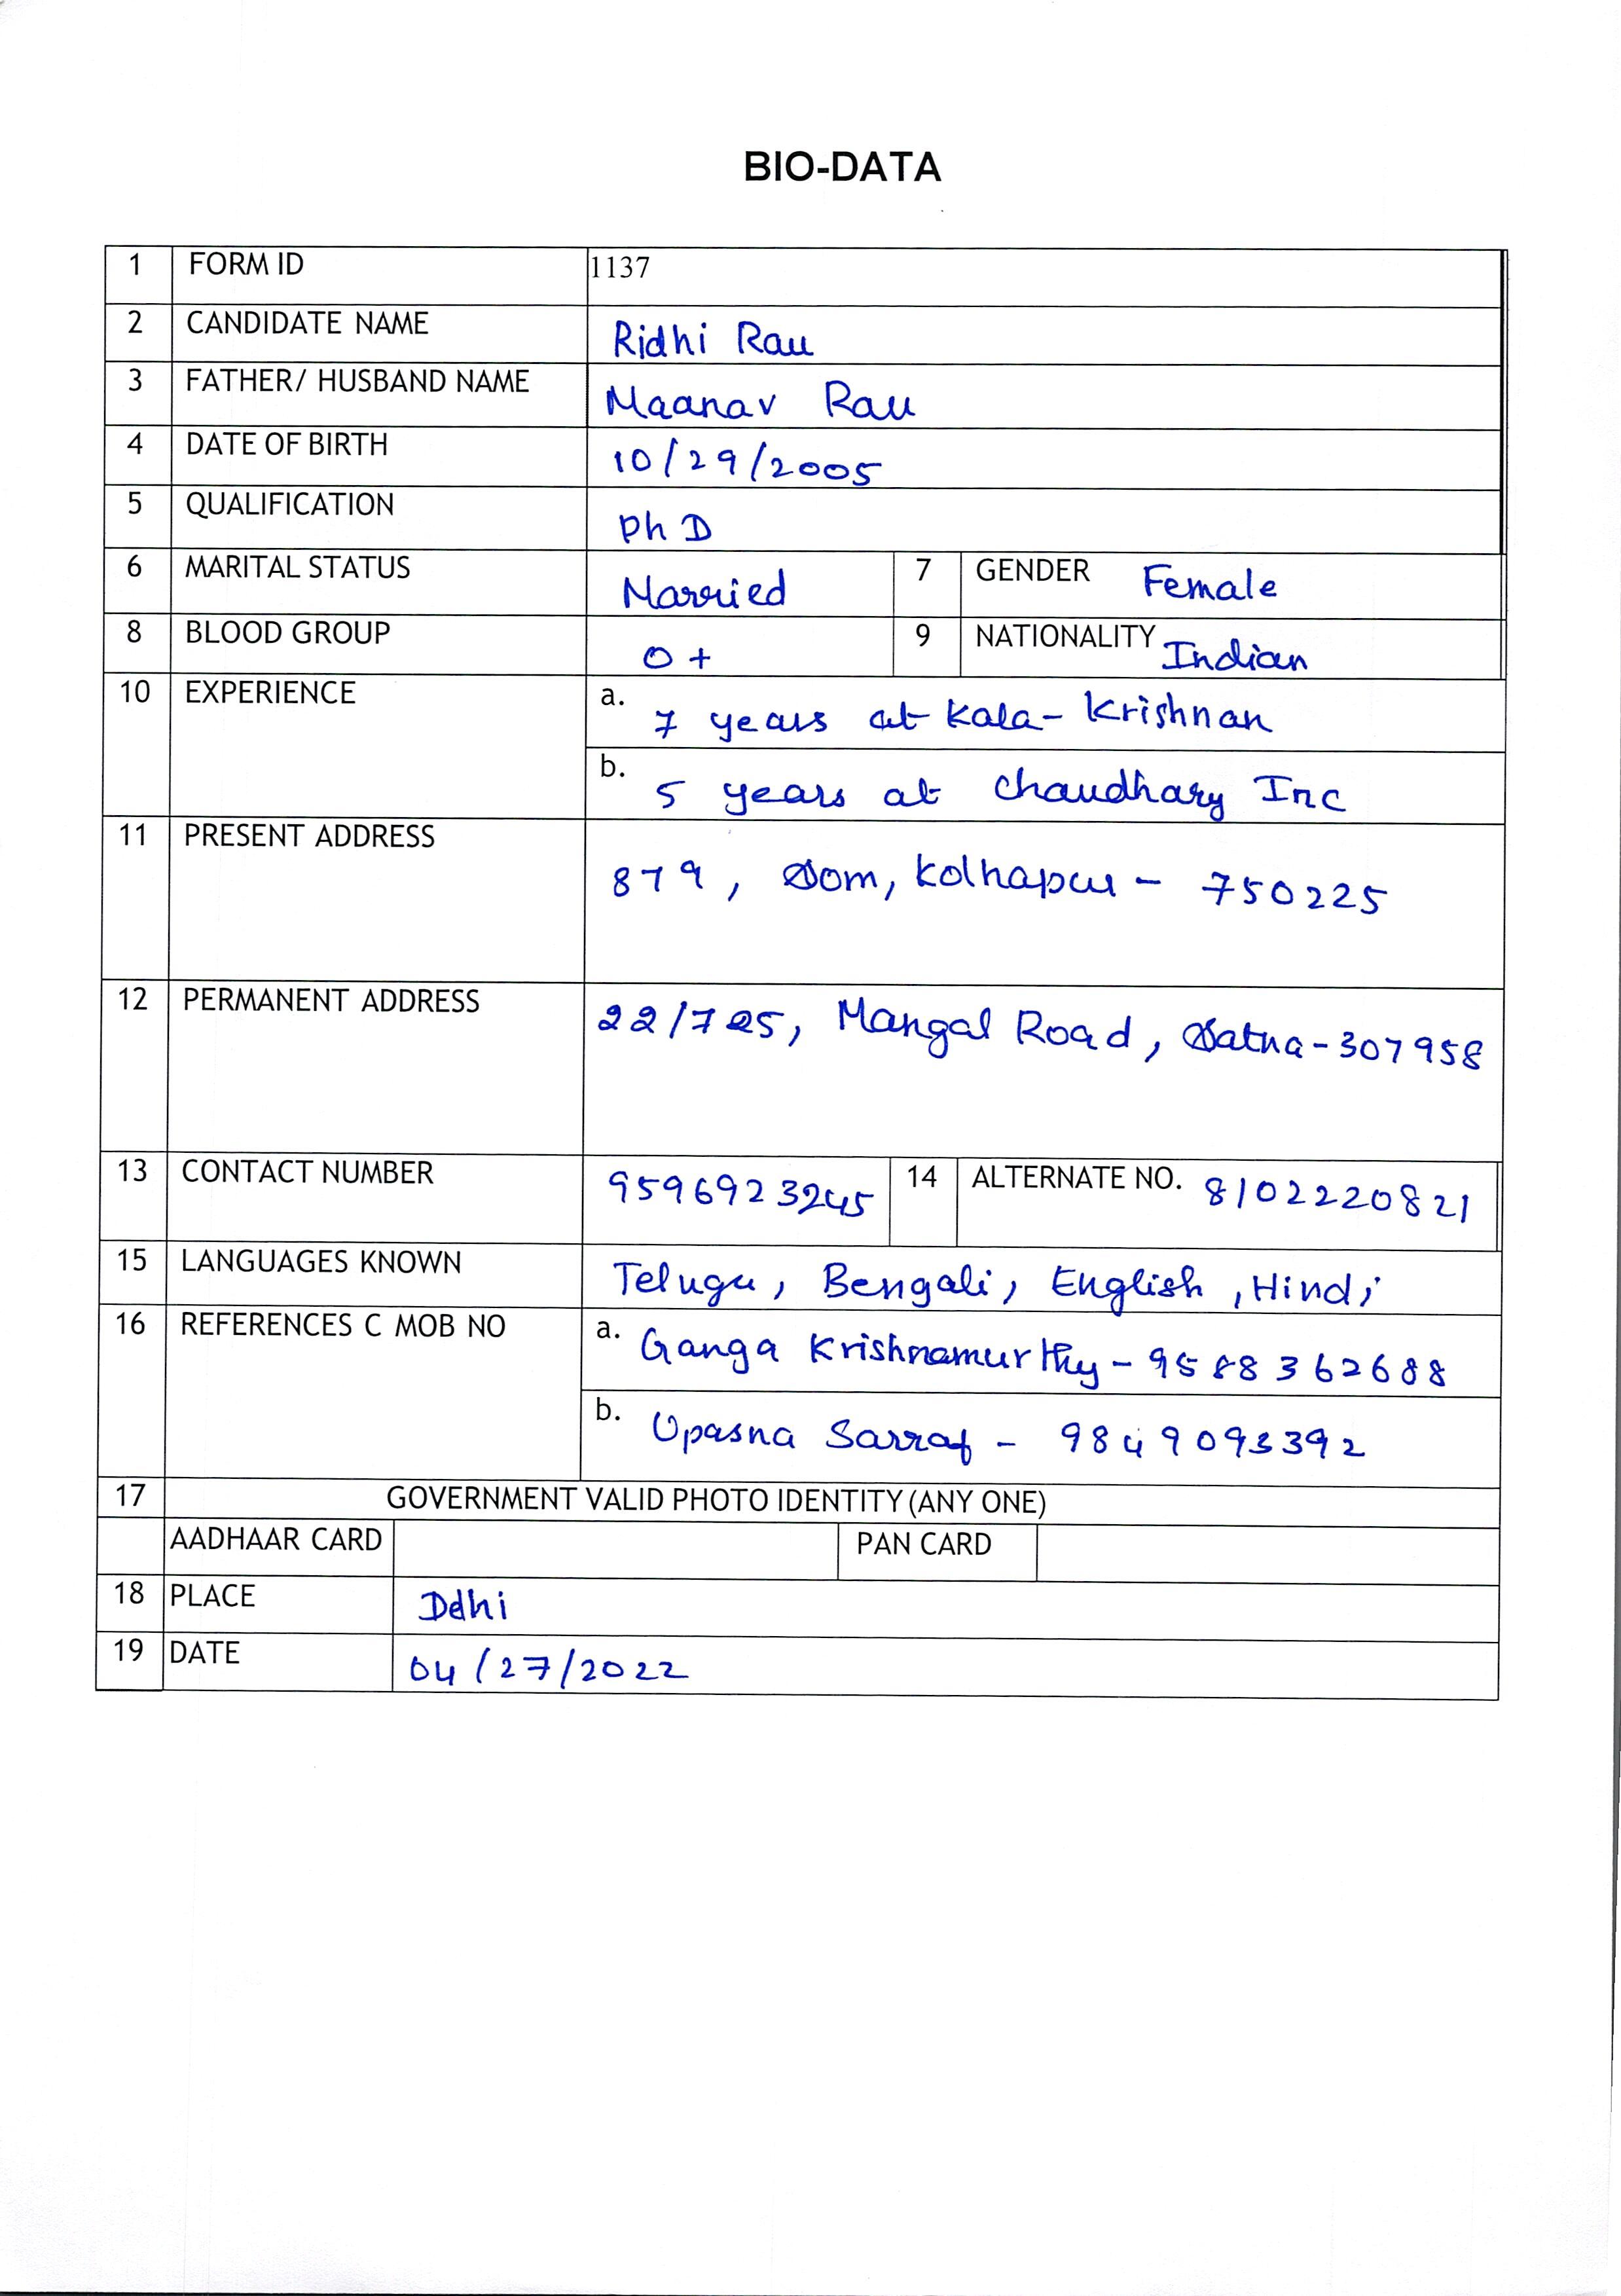 BIO-DATA
1 FORM ID 1137
2 CANDIDATE NAME Ridhi Rau
3 FATHER/ HUSBAND NAME Maanav Rau
4 DATE OF BIRTH 10/29/2005
5 QUALIFICATION PhD
6 MARITAL STATUS Married 7 GENDER Female
8 BLOOD GROUP O+ 9 NATIONALITY Indian
10 EXPERIENCE a. 7 years at Kala-Krishnan
b. 5 years at Chaudhary Inc
11 PRESENT ADDRESS 879, Som, Kolhapur - 750225
12 PERMANENT ADDRESS 22/725, Mangal Road, Satna-307958
13 CONTACT NUMBER 9596923245 14 ALTERNATE NO. 8102220821
15 LANGUAGES KNOWN Telugu, Bengali, English, Hindi
16 REFERENCES C MOB NO a. Ganga Krishnamurthy-9588362688
b. Upasna Sarraf - 9849093392
17 GOVERNMENT VALID PHOTO IDENTITY (ANY ONE)
AADHAAR CARD PAN CARD
18 PLACE Delhi
19 DATE 04/27/2022